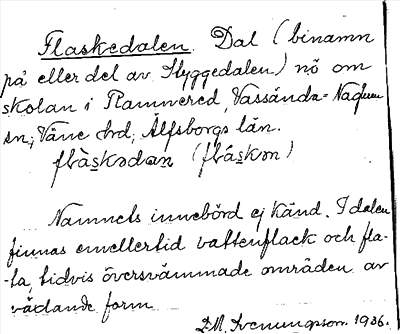 Flaskedalen. Dal (binamn
på eller del av Hyggedalen) nö om
skolan i Rannered, Vassända=Naglum
sn; Väne hrd; Älfsborgs län.
flàskədan (flåskən)
Namnets innebörd ej känd. I dalen
finnas emellertid vattenflack och fla-
-ta, tidvis översvämmade områden av
växlande form
D.M. Svenungsson. 1936.